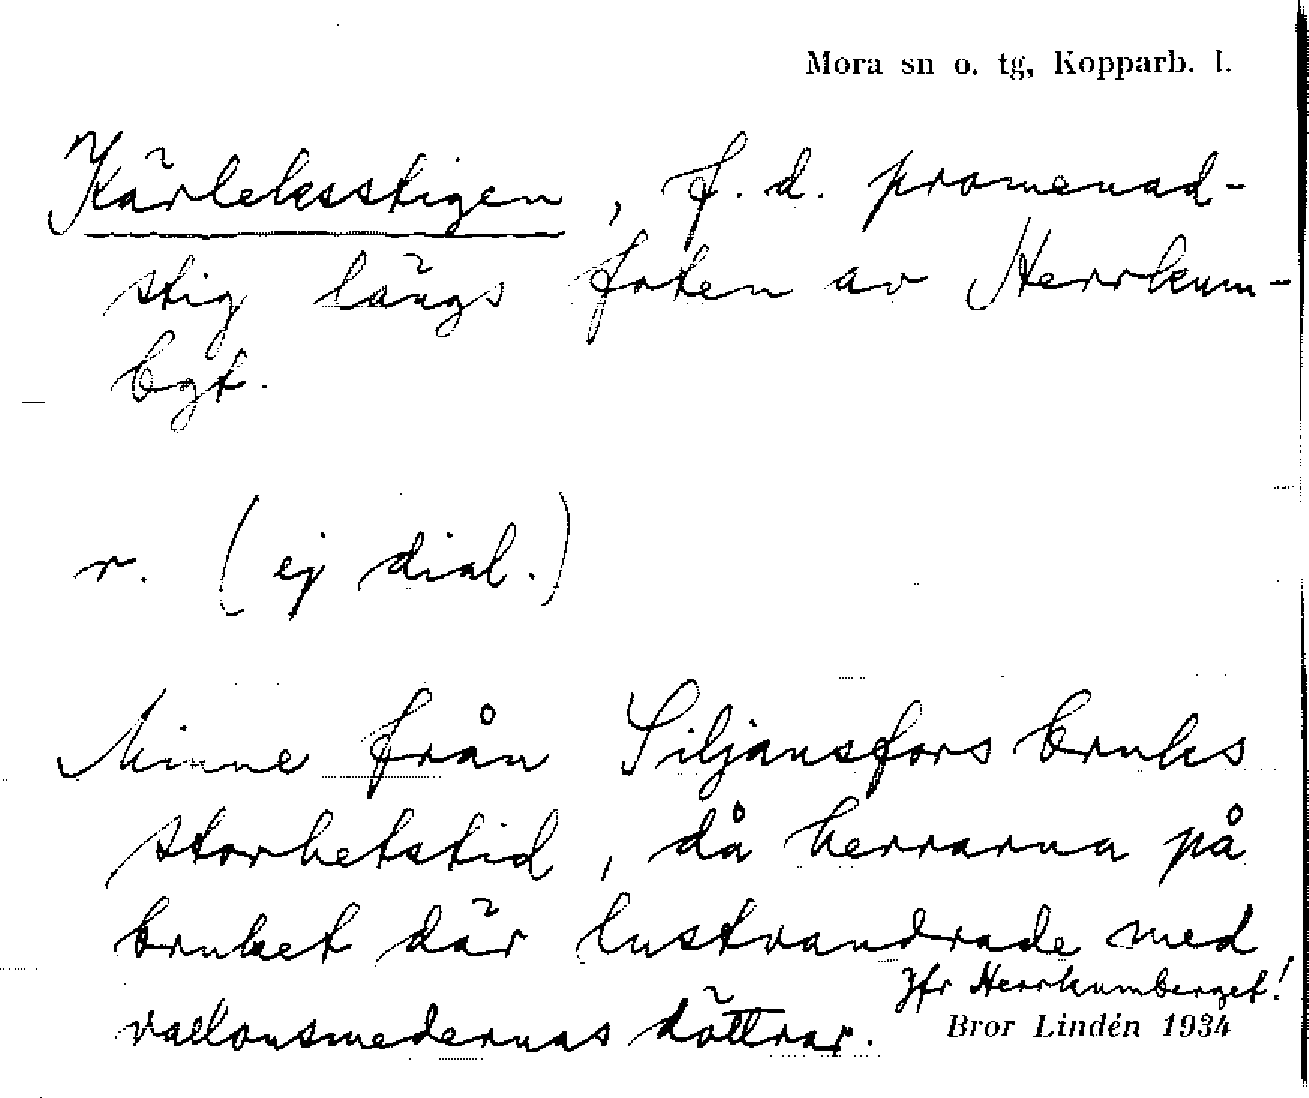 Mora sn o. tg, Kopparb. l.
Kärleksstigen, f. d. promenad-
stig längs foten av Herrkum-
bgt.
r. (ej dial.)
Minne från Siljansfors bruks
storhetstid, då herrarna på
bruket där lustvandrade med
vallonsmedernas döttrar.
Jfr Herrkumberget!
Bror Lindén 1934